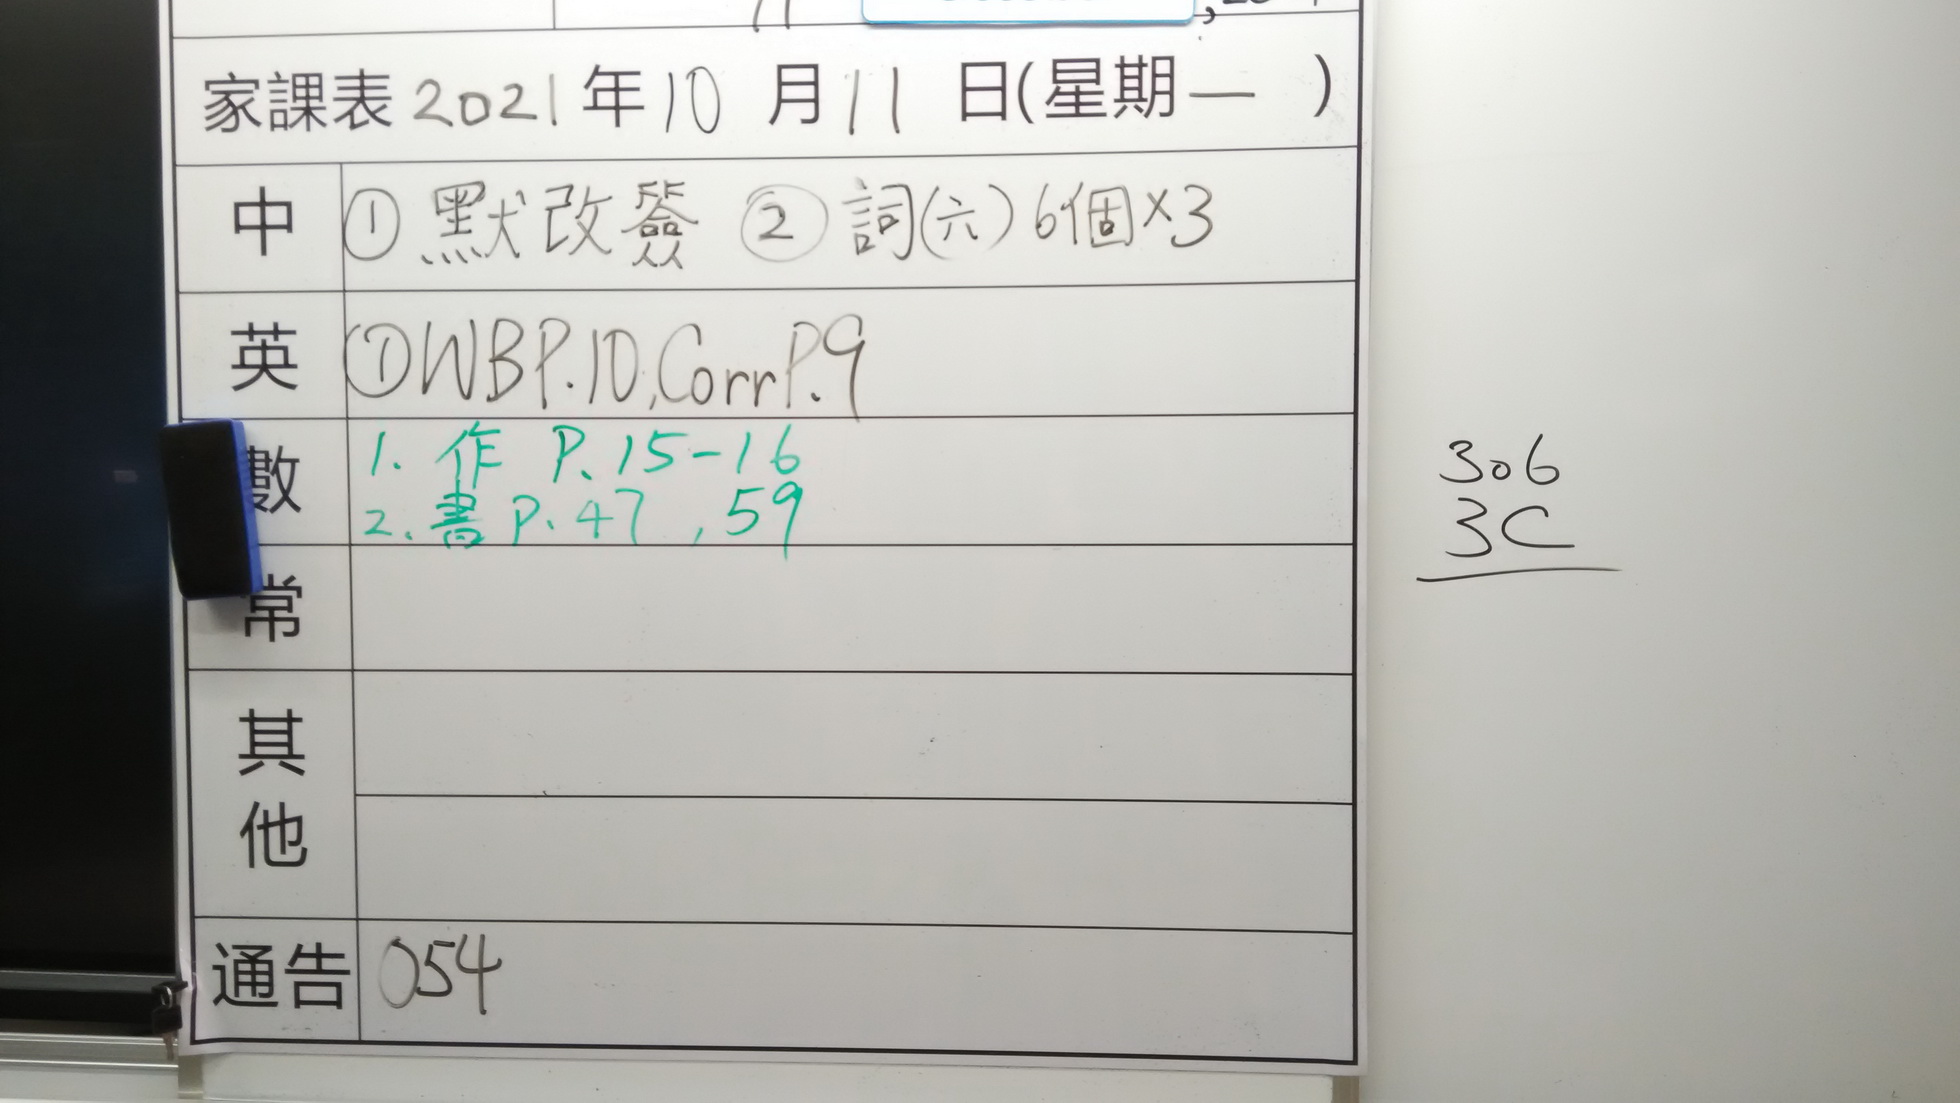 家課表 2021 年 10 月 11 日(星期一 )
中 ① 默改簽 ② 詞(六) 6個×3
英 ① WB P.10, Corr P.9
數 1. 作 P.15-16
2. 書 P.47 , 59
常
其他
通告 054
306
3C